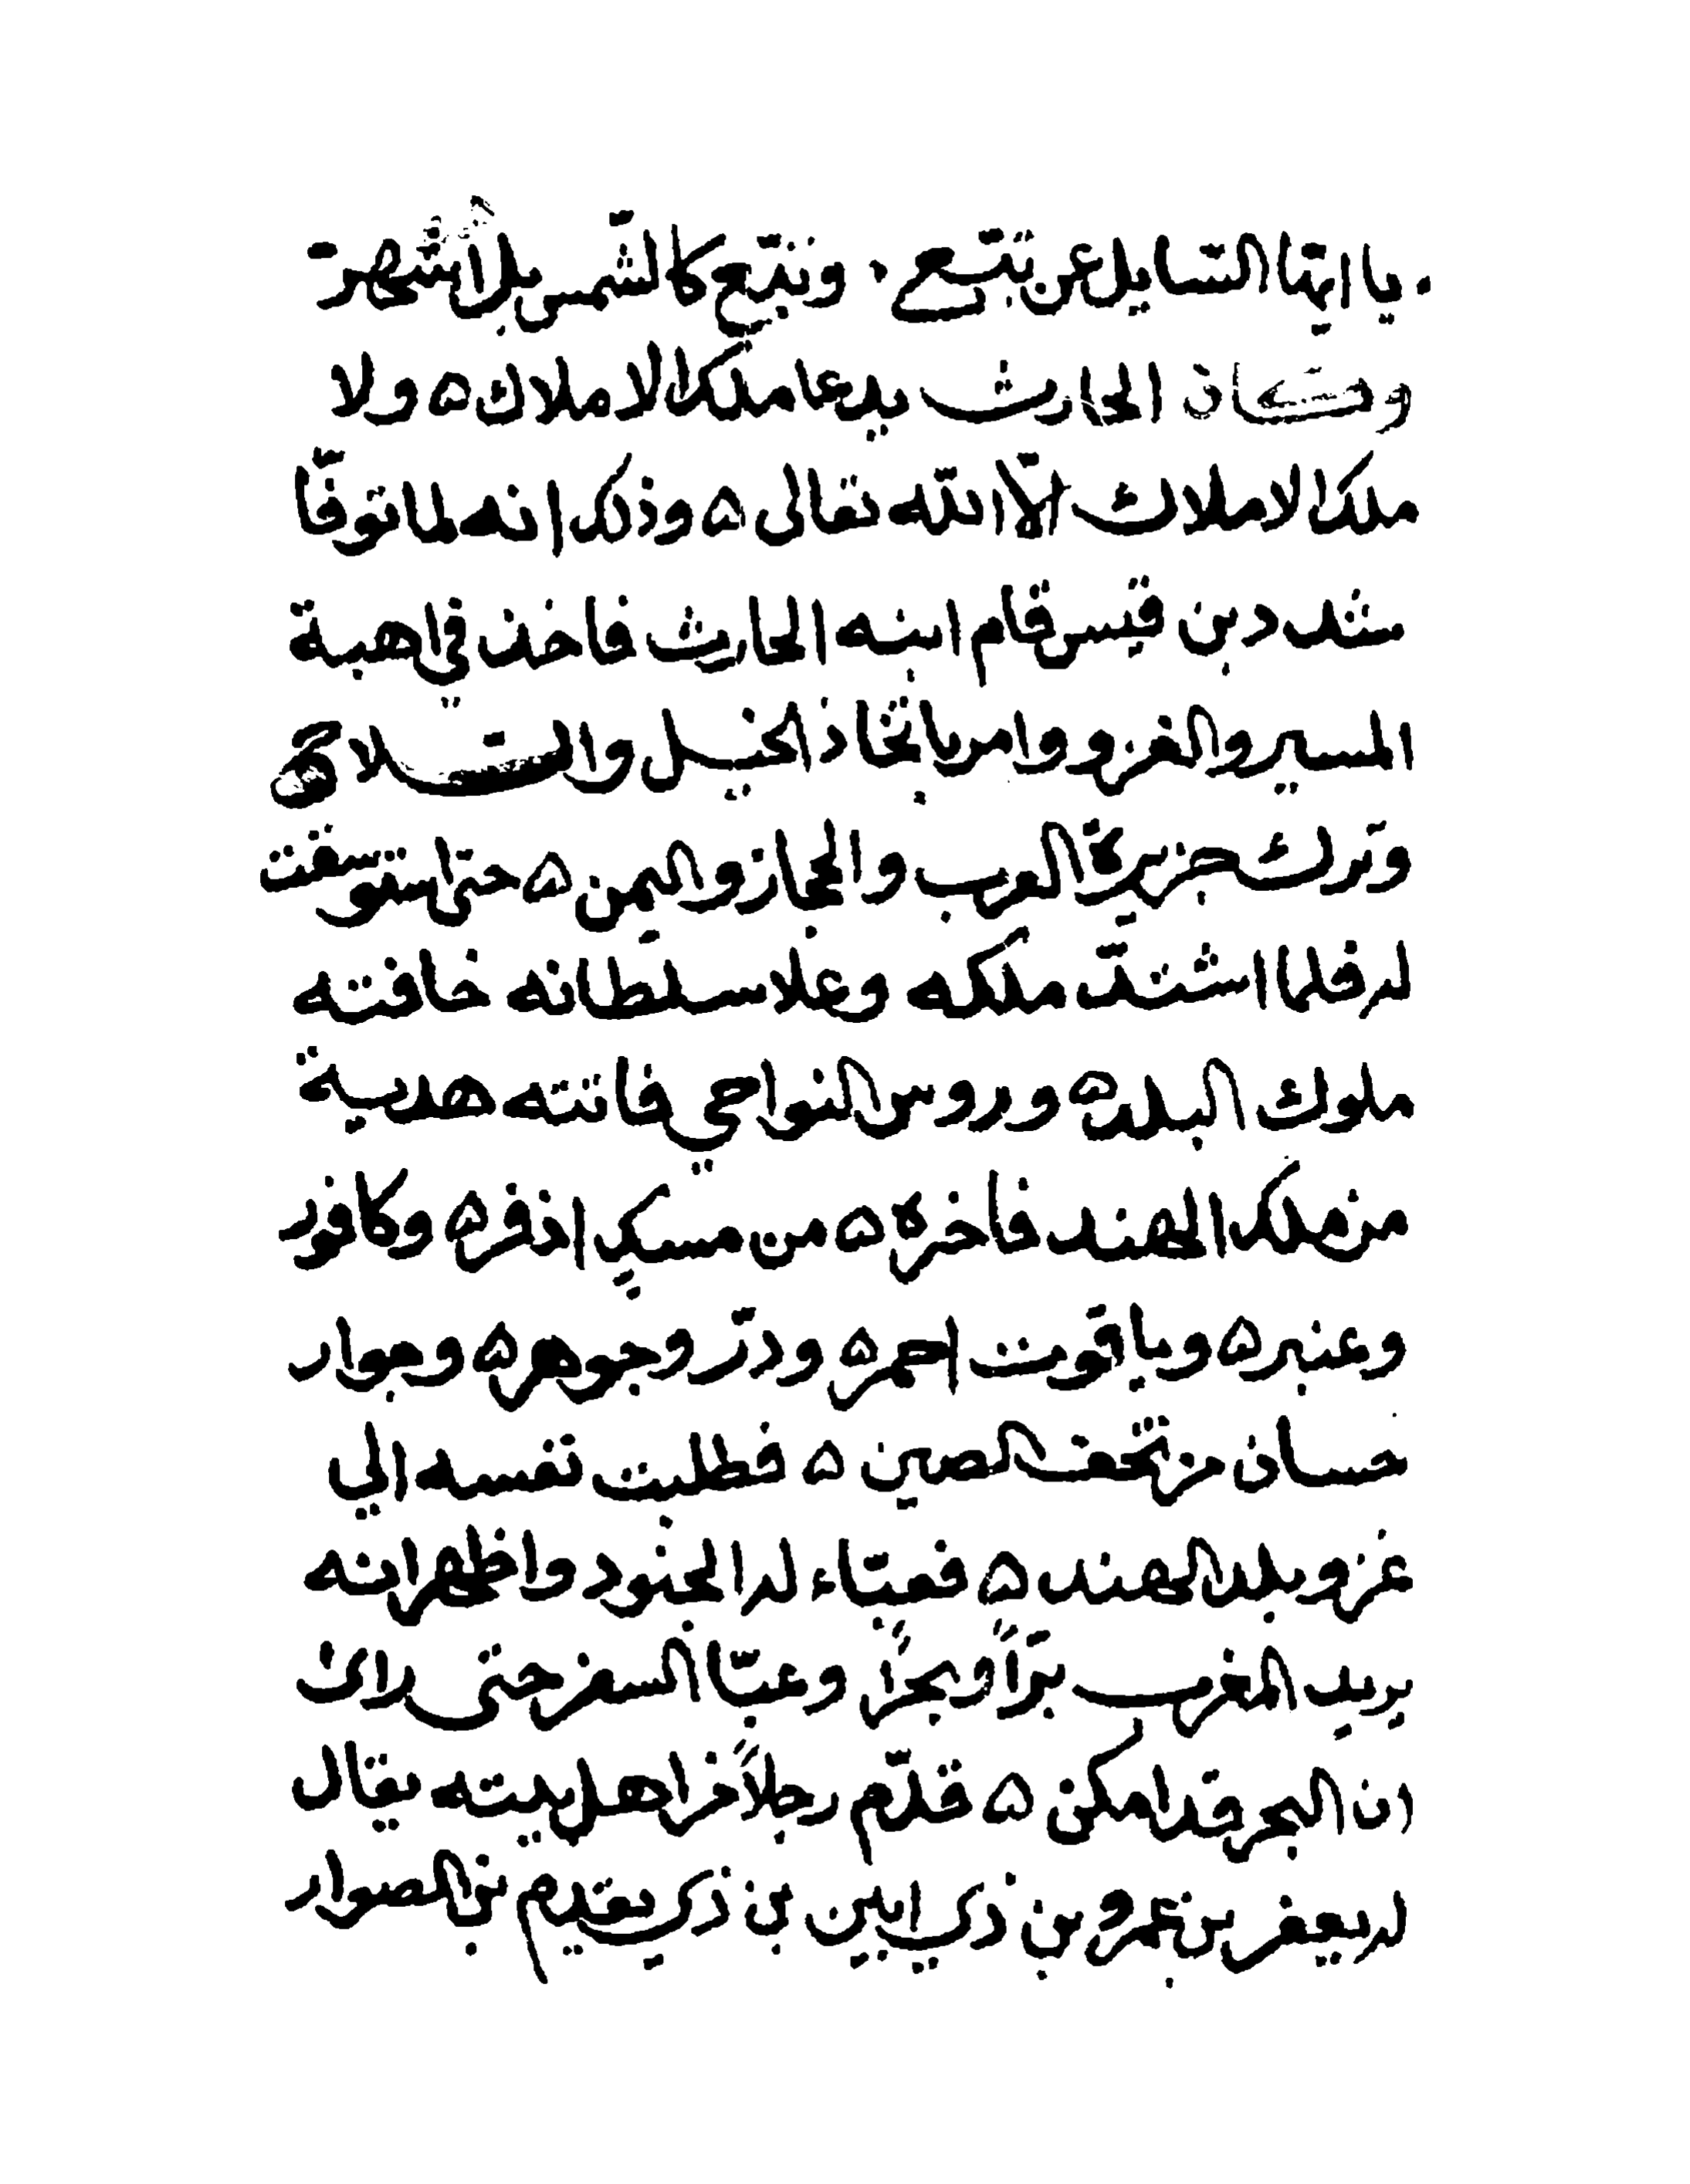 . يا ايّها السّايل عن تُبّع . وتبّع كالشّمس بل اشهرَ
وكان الحارث يدعا ملك الاملاك ه ولا
ملك الاملاك الاّ الله تعالى ه وذلك انه لما توفّا
شدد بن قيس قام ابنه الحارث فاخذ في اهبة
المسير والغزو وامر باتّخاذ الخيل والسّلاح
وترك جزيرة العرب والحجاز واليمن ه حتى استوسقت
له فلما اشتدّ ملكه وعلا سلطانه خافته
ملوك البلد ه وروس النواحي فاتته هدية
من ملك الهند فاخره ه من مسكٍ اذفر ه وكافور
وعنبر ه وياقوت احمر ه ودرّ وجوهر ه وجوار
حسان من تحف الصين ه فطلبت نفسه الي
غزو بلد الهند ه فعبّاء له الجنود واظهر انه
يريد المغرب برّاً وبحراً وعبّا السفن حتى راى
ان البحر قد امكن ه قدّم رجلاً من اهل بيته يقال
له يعفر بن عمرو بن ذي ابين بن ذي يقدم بن الصوار